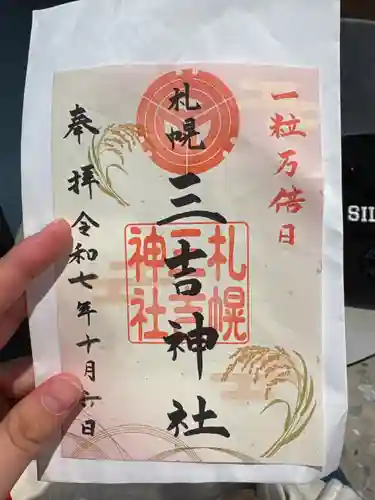 一粒万倍日
札幌
三吉神社
札幌
三吉
神社
奉拝
令和七年十月六日
SIL